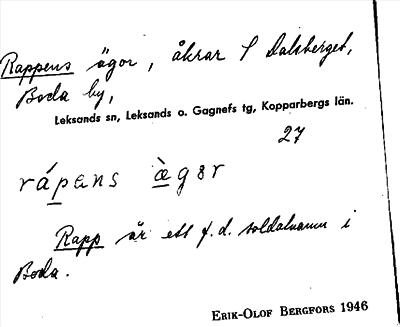 Rappens ägor, åkrar S Dalsberget,
Boda by,
Leksands sn, Leksands o. Gagnefs tg, Kopparbergs län.
27
rápens ægǝr
Rapp är ett f.d. soldatnamn i
Boda.
ERIK-OLOF BERGFORS 1946